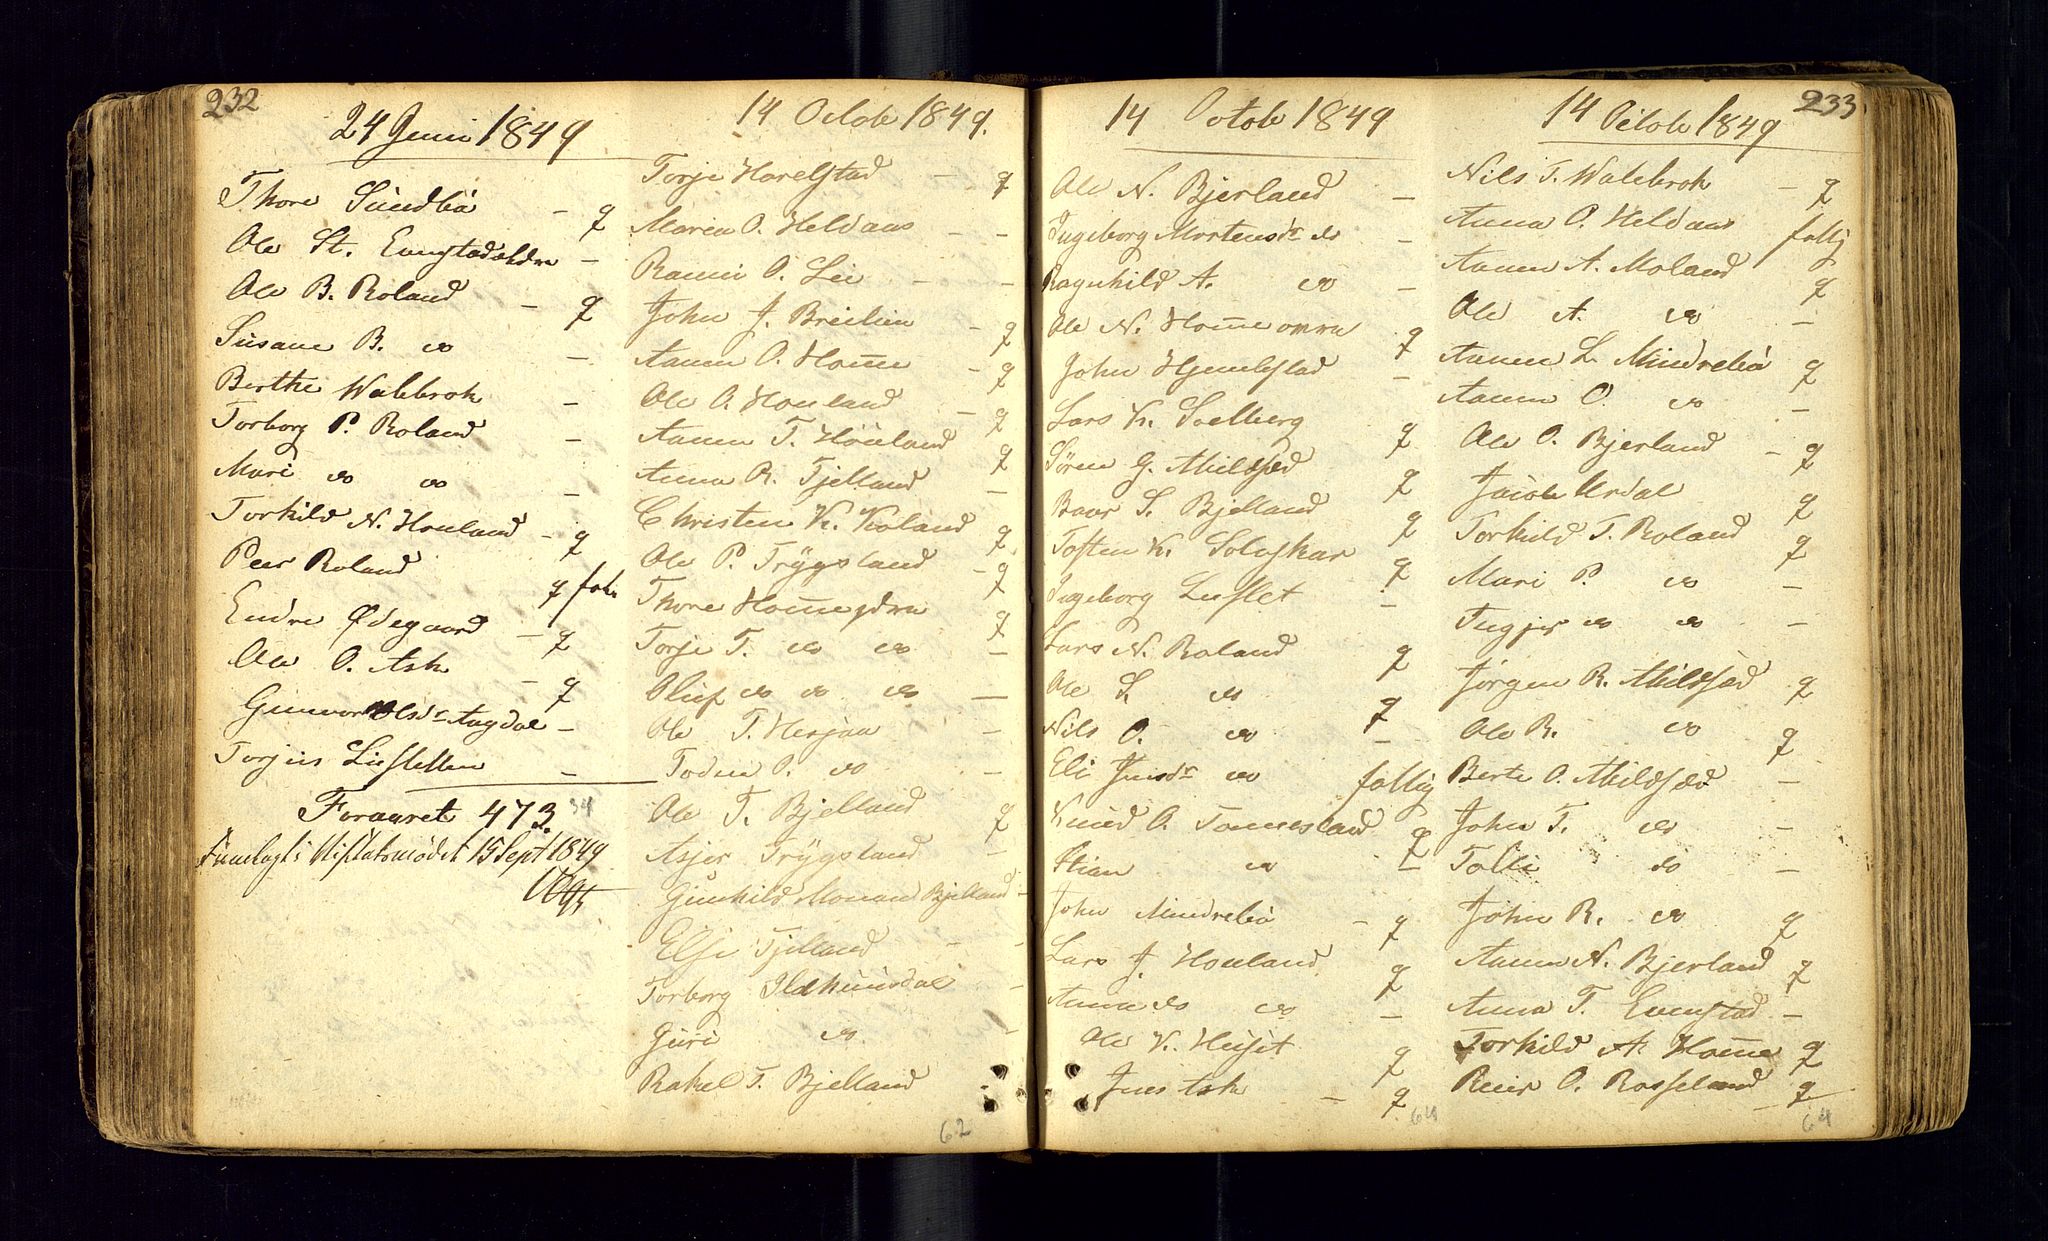 232
24 Juni 1849
Thore Sundbö - q
Ole St. Evenstadældre -
Ole B. Roland - q
Susane B. do -
Berthe Walebrok -
Torborg P. Roland -
Mari do do -
Torkild N. Houland - q
Peer Roland q fat.
Endre Ødegaard - q
Ole O. Ask - q
Gunvor Olsdr Augdal -
Torjus Liesletten -
Foraaret 473. 34
Fremlagt i 15 Sept 1849
14 Octob 1849.
Torje Harelstad - q
Maren O. Heldaas - -
Rannei O. Lie - -
John J. Breilien - q
Aanen O. Homme - q
Ole O. Houland - q
Aanen T. Houland q
Anna R. Tjelland -
Christen K. Roland q
Ole P. Trygsland - q
Thore Homme ydre q
Torje T. do do -
Oluf do do do -
Ole T. Hesjaa -
Todne O. do -
Ole T. Bjelland q
Asjer Trygsland -
Gunhild Monan Bjelland -
Elsi Tjelland - -
Torborg Ildhuusdal -
Guri do -
Rakel T. Bjelland
62
14 Octob 1849
Ole N. Bjerland -
Ingeborg Mortensdr do -
Ragnhild A. do -
Ole N. Homme øvre q
John Hjemlestad -
Lars K. Solberg q
Sören G. Abildsød q
Baar S. Bjelland q
Tosten K. Soleskar q
Ingeborg Lieslet -
Lars N. Roland q
Ole L. do q
Nils O. do -
Eli Jensdr do fattig
Knud O. Tonnesland q
Stian do -
John Mindrebö - q
Lars J. Houland q
Anna do do -
Ole K. Huset q
Jens Ask - q
64
233
14 Octob 1849
Nils T. Walebrok - q
Anna O. Heldaas fattig
Aanen A. Moland q
Ole A. do -
Aanen L. Mindrebö q
Aanen O. do -
Ole O. Bjerland - q
Jacob Urdal q
Torkild T. Roland q
Mari P. do -
Tngjer do do -
Jörgen R. Abildsød q
Ole R. do q
Berte O. Abildsød -
John T. do -
Tolli do -
John R. do q
Aanen N. Bjerland q
Anna T. Evenstad -
Torkild A. Homme q
Reier O. Rosseland q
64